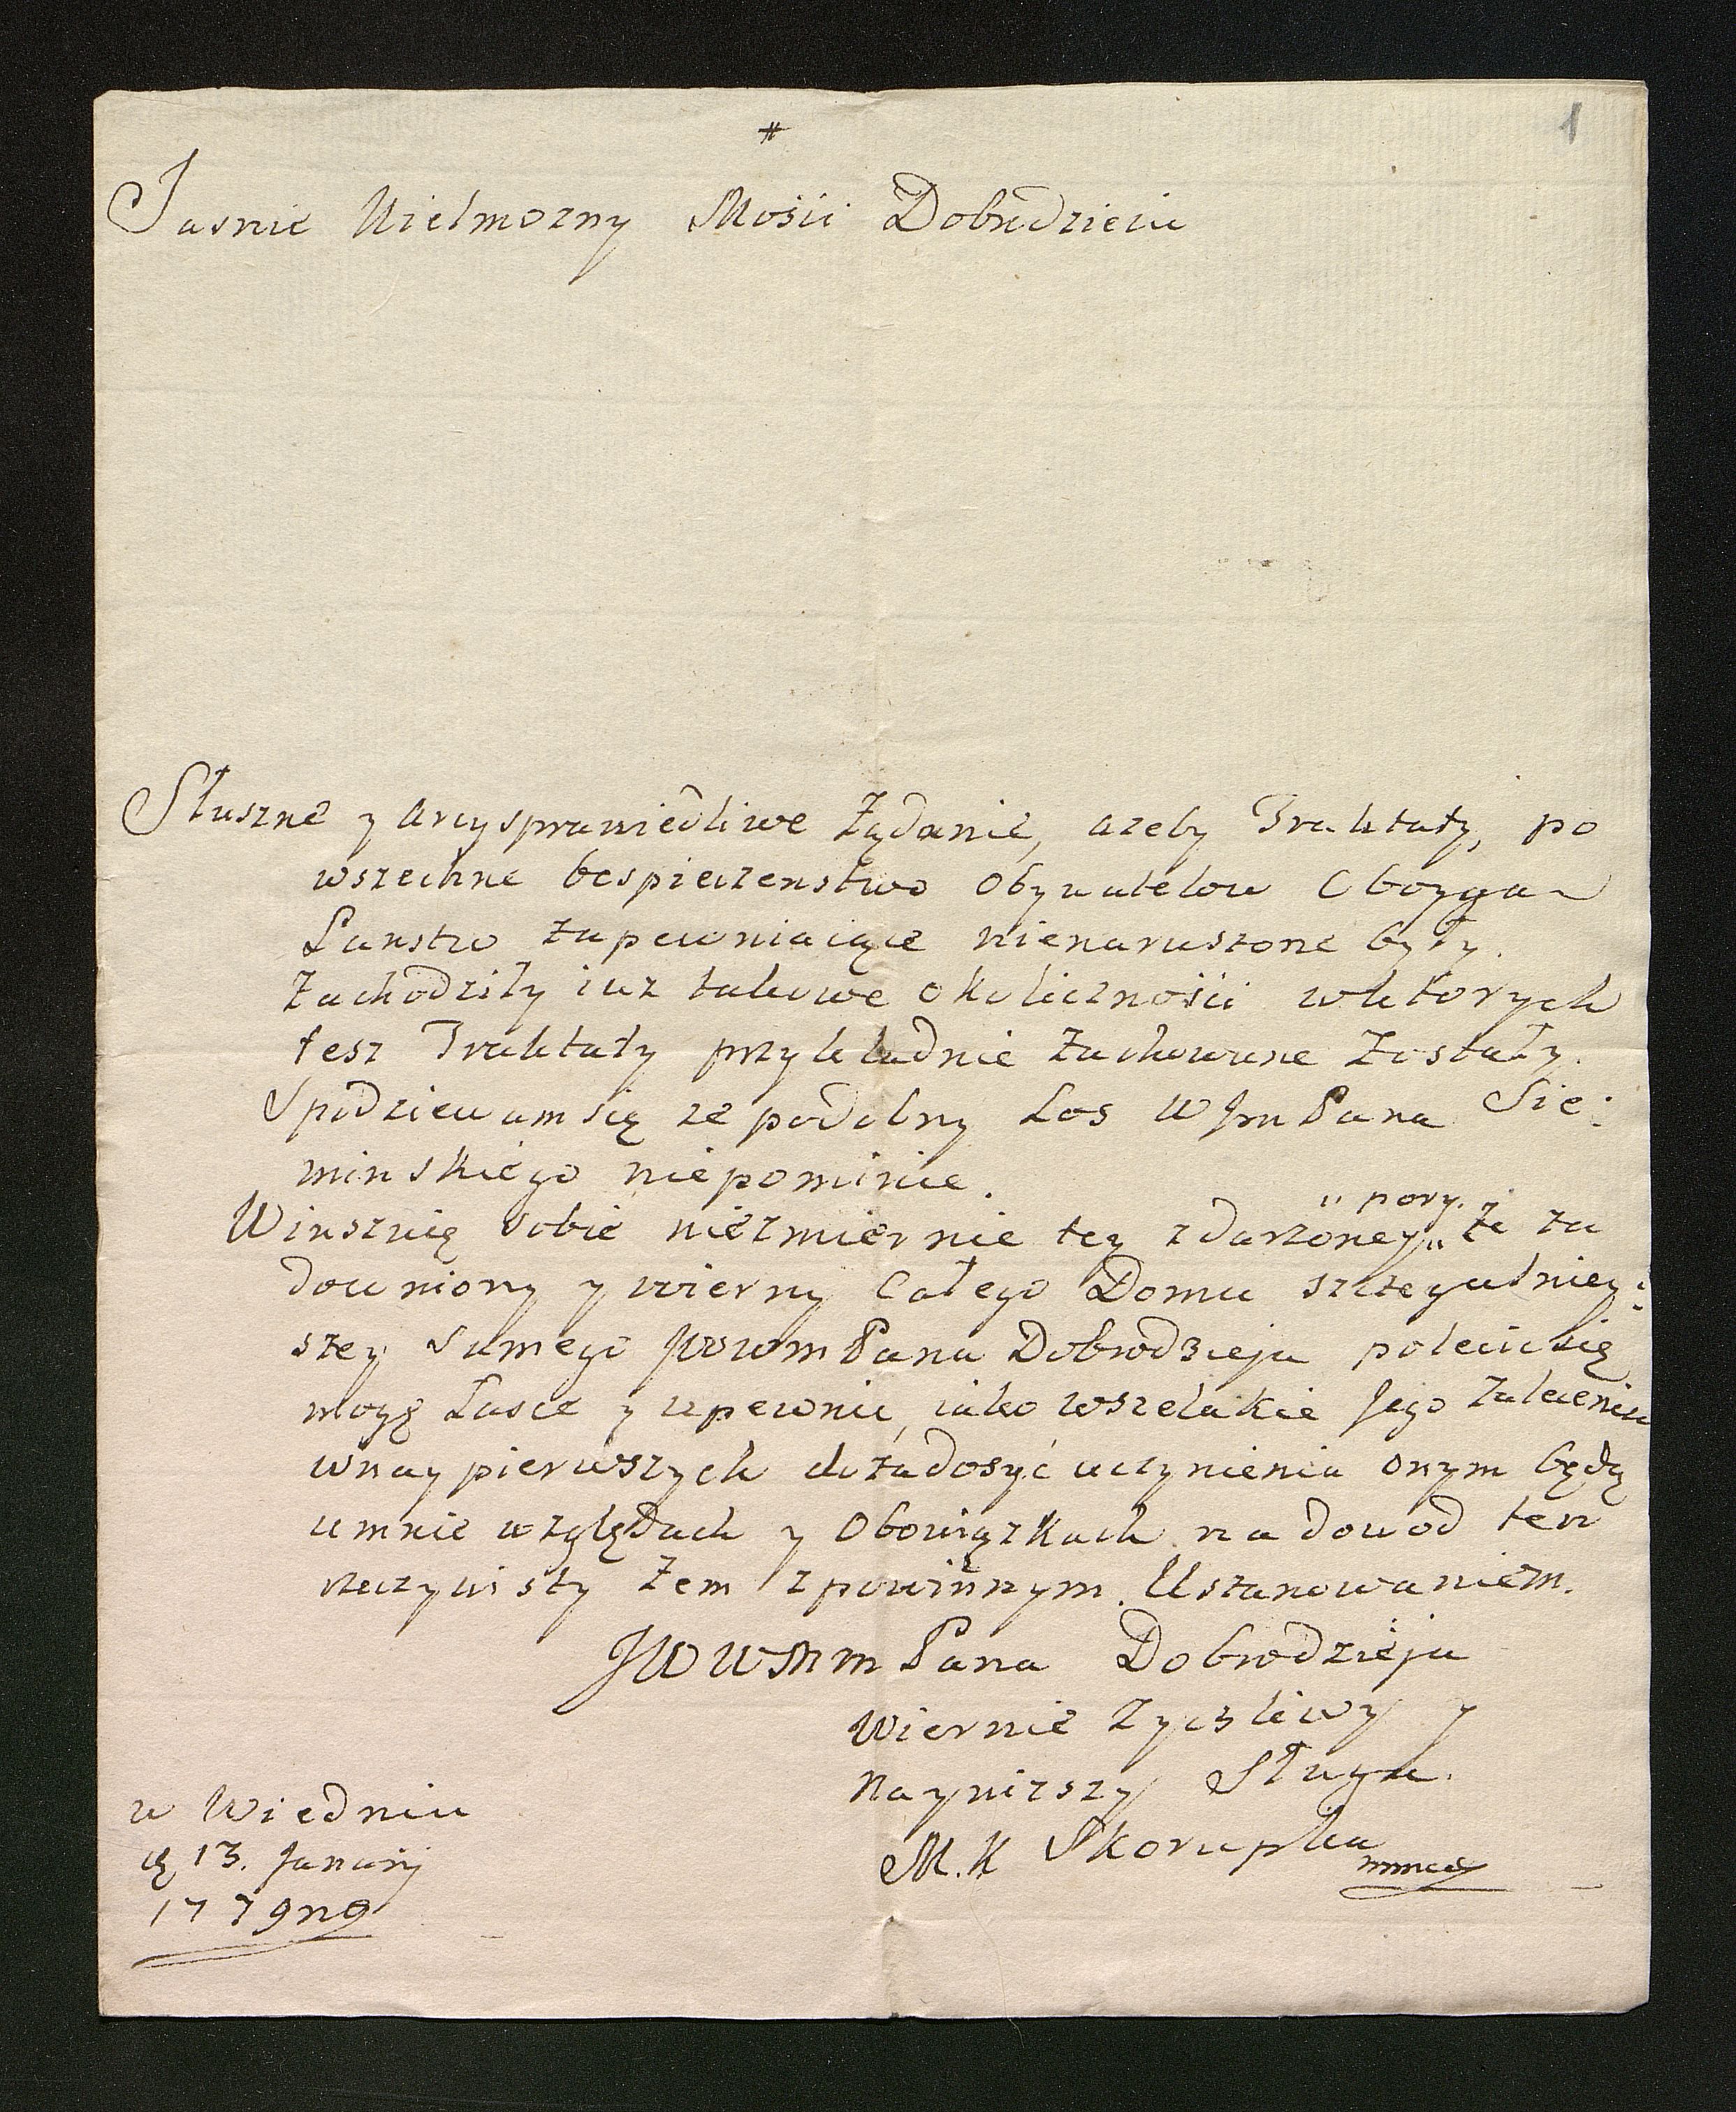 1
#
Jasnie Wielmozny Mośći Dobrodzieiu
Słuszne y arcysprawiedliwe Żądanie, azeby Traktaty, po
wszechne bespieczenstwo Obywatelow Oboyga
Panstw zapewniaiące nienaruszone były.
Zachodziły iuz takowe okolicznośći wktorych
tesz Traktaty przykładnie zachowane zostały.
Spodziewam się ze podobny Los WJm Pana Sie:
minskiego niepominie.
Winsznię sobie niezmiernie tey zdarzoney " że za
" pory.
downiony y wierny Całego Domu szczegulniey:
szey samego JWWm Pana Dobrodzieja polecić się
mogę Łasce y upewnić, iako wszelakie Jego zalecenia
wnaypierwszych do zadosyć uczynienia onym będą
umnie względach y Obowiązkach na dowod ten
rzeczywisty żem zpowinnym Uszanowaniem.
JWWMm Pana Dobrodzieja
Wiernie zyczliwy y
naynizszy Sługa.
M. K Skorupka
mmce
w Wiedniu
13. Januarij
1779